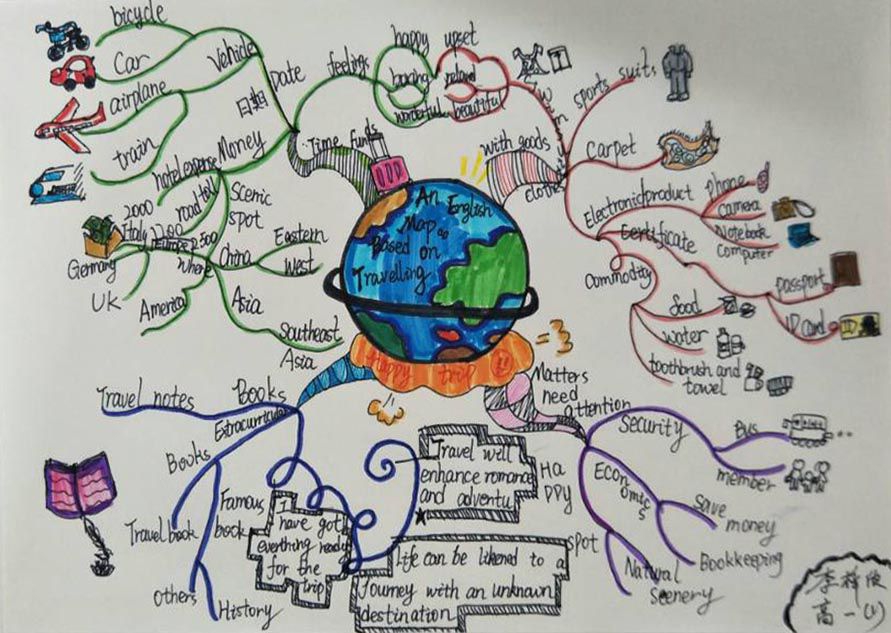 bicycle
Car
airplane
train
Vehicle
Date
日期
Money
hotel expense
road toll
Scenic
spot
2000
Italy
Germany
UK
America
where
China
Eastern
West
Asia
Southeast
Asia
Time
funds
feelings
happy
upset
boring
wonderful
beautiful
with goods
clothes
sports suits
Carpet
Electronic product
phone
camera
Notebook
Computer
Certificate
passport
ID card
Commodity
food
water
toothbrush and
towel
An English
Map
Based on
Travelling
Happy trip
Matters
need
attention
Security
Bus
member
Economics
Save
money
Bookkeeping
Spot
Natural
Scenery
Books
Travel notes
Extracurricular
Books
Travel book
Famous
book
Others
History
I
have got
everthing ready
for the
trip
Travel will
enhance romance
and adventu
HA
PPY
Life can be likened to a
Journey with an unknown
destination
高一(1)